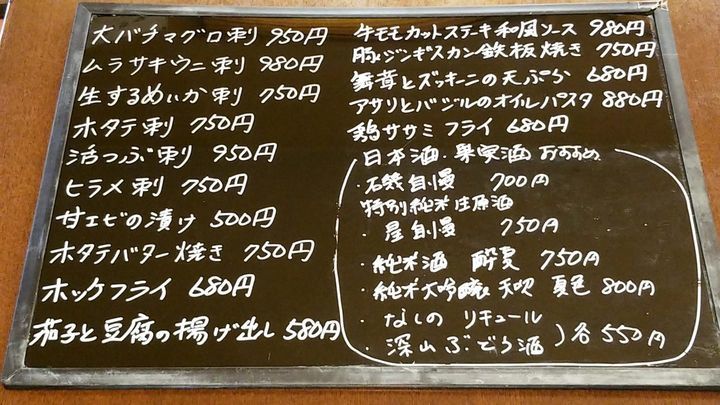 大バチマグロ刺 950円
ムラサキウニ刺 980円
生するめいか刺 750円
ホタテ刺 750円
活つぶ刺 950円
ヒラメ刺 750円
甘エビの漬け 500円
ホタテバター焼き 750円
ホッケフライ 680円
茄子と豆腐の揚げ出し 580円
牛モモカットステーキ和風ソース 980円
豚ジンギスカン鉄板焼き 750円
舞茸とズッキーニの天ぷら 680円
アサリとバジルのオイルパスタ 880円
鶏ササミフライ 680円
日本酒・果実酒 おすすめ
・石鎚自慢 700円
特別純米生原酒
・屋自慢 750円
・純米酒 酔夏 750円
・純米大吟醸 夏色 800円
・なしの リキュール
・深山ぶどう酒 ) 各550円